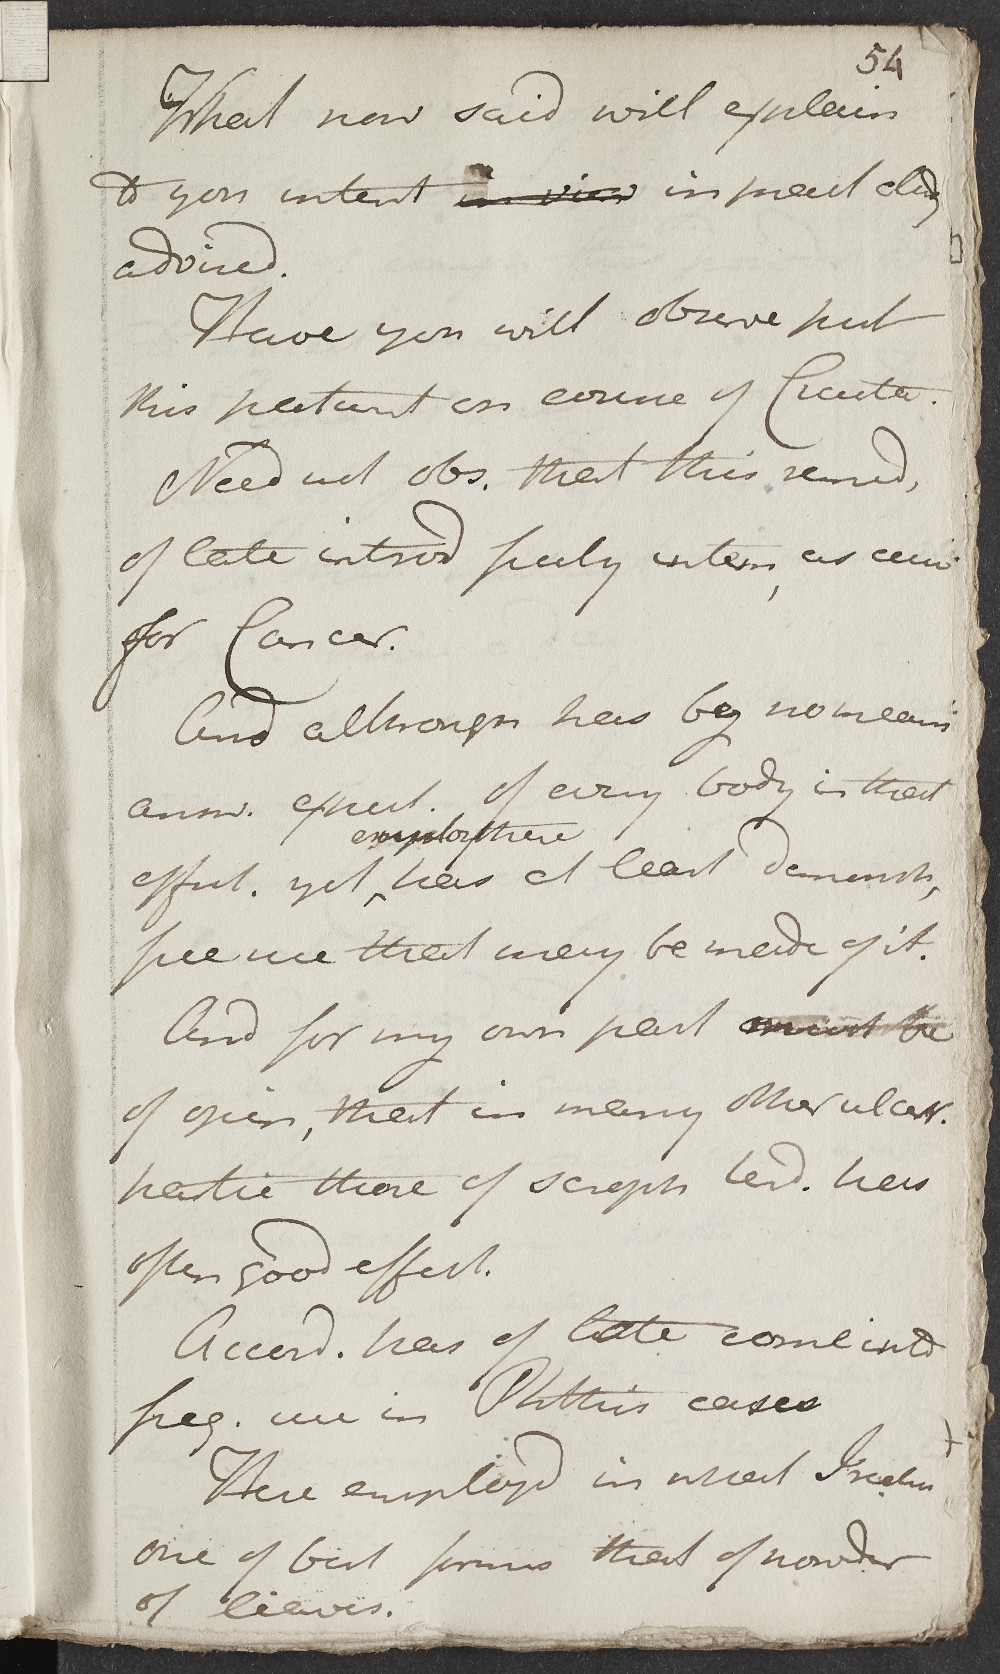 54
What now said will explain
to you intent in view in preact
advised.
Have you will observe put
this patient on course of Cicuta.
Need not obs. that this remed,
of late introd feely intern, as
for Cancer.
And although has by no means
answ. expect. of every body in that
employthere
effect. yet ^ has at least demonstr,
free use that may be made of it.
And for my own part must be
of opin, that in many other ulcers.
partic those of scroph tend. has
often good effect.
Accord. has of late come into
freq. use in Phthis cases
Here employd in what I reckn
one of best forms that of powder
of lieaves.